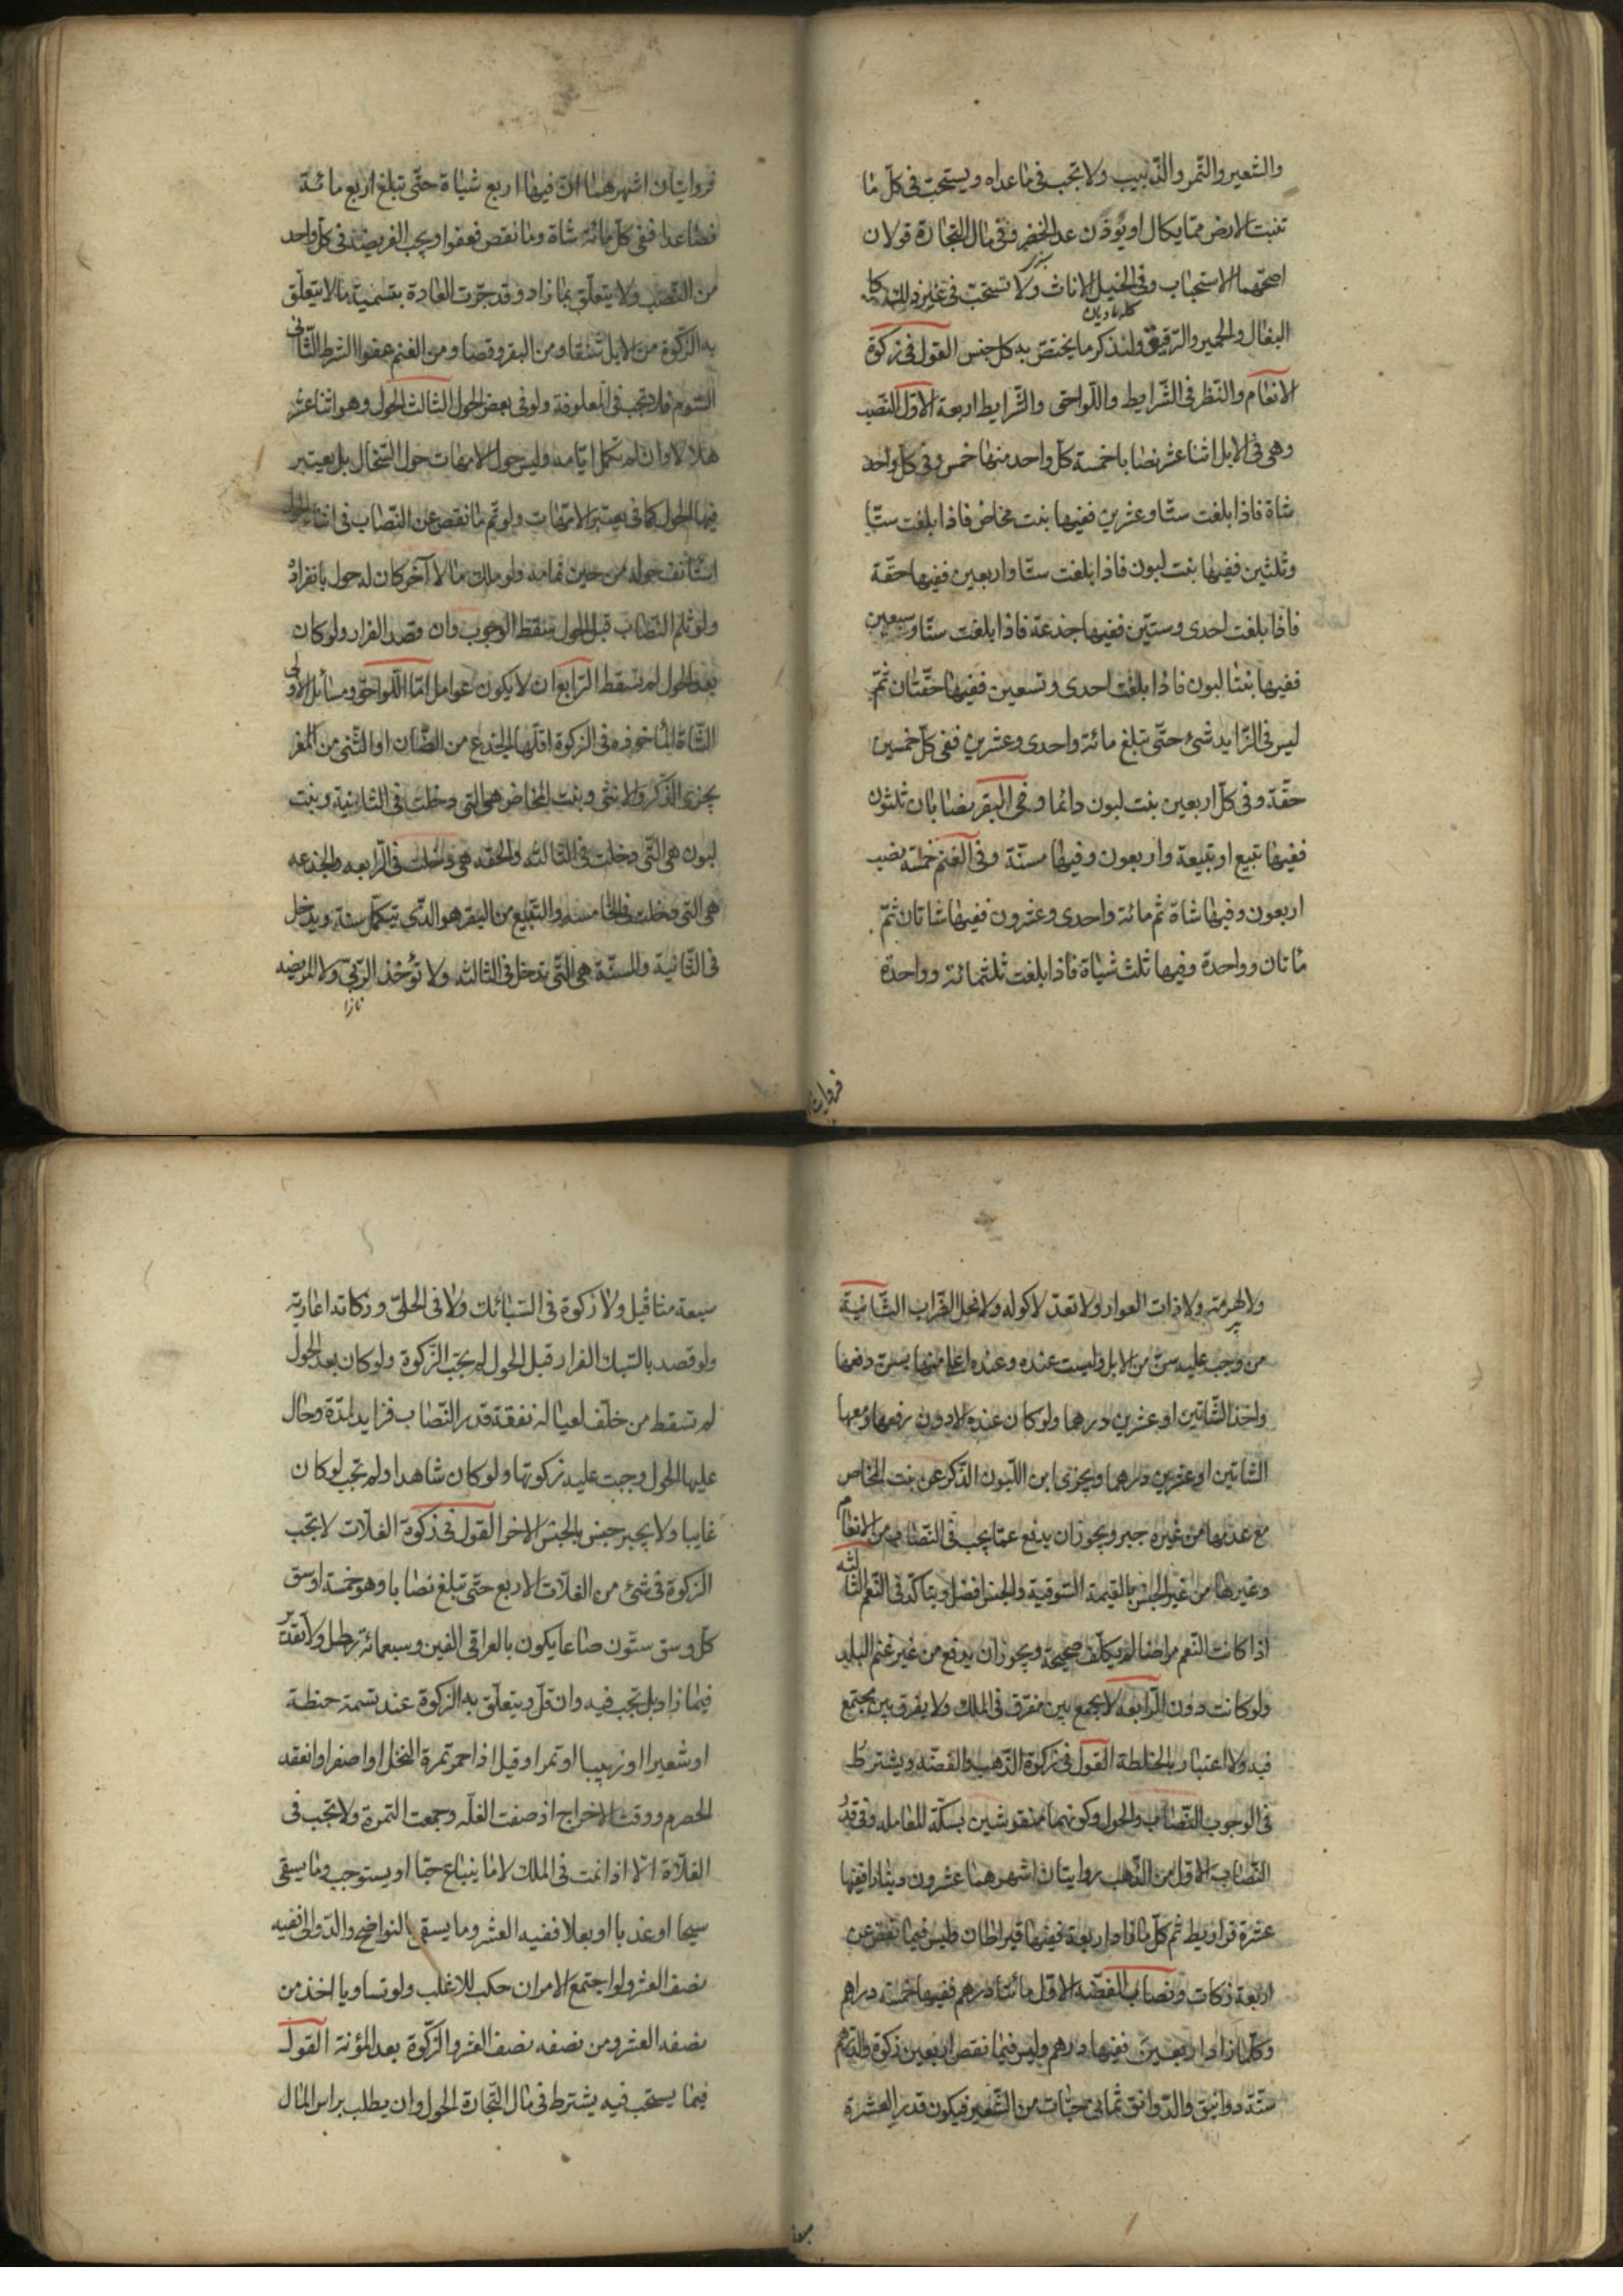 والشعير والتمر والزبيب ولا تجب فى ما عداه ويستحب فى كل ما
تنبت الارض مما يكال او يوزن عدا الخضر وفى مال التجارة قولان
اصحهما الاستحباب وفى الخيل الاناث ولا تستحب فى غير ذلك كا
البغال والحمير والرقيق ولنذكر ما يختص به كل جنس القول فى زكوة
الانعام والنظر فى الشرايط واللواحق والشرايط اربعة الاول النصب
وهى فى الابل اثنا عشر نصابا خمسة كل واحد منها خمس وفى كل واحد
شاة فاذا بلغت ستا وعشرين ففيها بنت مخاض فاذا بلغت ستا
وثلثين ففيها بنت لبون فاذا بلغت ستا واربعين ففيها حقة
فاذا بلغت احدى وستين ففيها جذعة فاذا بلغت ستا وسبعين
ففيها بنتا لبون فاذا بلغت احدى وتسعين ففيها حقتان ثم
ليس فى الزايد شئ حتى تبلغ مائة واحدى وعشرين ففى كل خمسين
حقة وفى كل اربعين بنت لبون دائما وفى البقر نصابان ثلثون
ففيها تبيع او تبيعة واربعون وفيها مسنة وفى الغنم خمسة نصب
اربعون وفيها شاة ثم مائة واحدى وعشرون ففيها شاتان ثم
مأتان وواحدة وفيها ثلث شياة فاذا بلغت ثلثمائة وواحدة
فروايتان اشهرهما ان فيها اربع شياة حتى تبلغ اربع مائة
فصاعدا ففى كل مائة شاة وما نقص فعفو ويجب الفريضة فى كل واحد
من النصب ولا يتعلق بما زاد وقد جرت العادة بتسمية ما لا يتعلق
به الزكوة من الابل شنقا ومن البقر وقصا ومن الغنم عفوا الشرط الثانى
السوم فلا تجب فى المعلوفة ولو فى بعض الحول الثالث الحول وهو اثنا عشر
هلالا وان لم تكمل ايامه وليس حول الامهات حول السخال بل يعتبر
فيها الحول كما فى يعتبر الامهات ولو تم ما نقص عن النصاب فى اثناء الحول
استانف حوله من حين تمامه ولو ملك مالا آخر كان له حول بانفراده
ولو ثلم النصاب قبل الحول سقط الوجوب وان قصد الفرار ولو كان
بعد الحول لم تسقط الرابع ان لا يكون عوامل اما اللواحق ومسائل الاولى
الشاة المأخوذة فى الزكوة اقلها الجذع من الضأن او الثنى من المعز
يجزى الذكر والانثى وبنت المخاض هى التى دخلت فى الثانية وبنت
لبون هى التى دخلت فى الثالثه والحقه هى دخلت فى الرابعه والجذعه
هى التى دخلت فى الخامسه والتبيع من البقر هو الذى تيكمل سنة ويدخل
فى الثانية والمسنة هى التى تدخل فى الثالثه ولا تؤخذ الربى ولا المريضه
فروايتان
ولا الهرمة ولا ذات العوار ولا تعد لاكوله ولا فحل الضراب الثانية
من وجب عليه سن من الابل وليست عنده وعنده اعلى منها بسن دفعها
واخذ الشاتين او عشرين درهما ولو كان عنده الادون دفعها ومعها
الشاتين او عشرين درهما ويجزى ابن اللبون الذكر عن بنت المخاض
مع عدمها من غيره جبر ويجوز ان يدفع عما يجب فى النصاب من الانعام
وغيرها من غير الجنس بالقيمة السوقية والجنس افضل ويتاكد فى النعم الثالثه
اذا كانت النعم مراضا لم يكلف صحيحة ويجوز ان يدفع من غير غنم البلد
ولو كانت دون الرابعة لا يجمع بين متفرق فى الملك ولا يفرق بين مجتمع
فيه ولا اعتبار بالخلطة القول فى زكوة الذهب والفضه ويشترط
فى الوجوب النصاب والحول وكونهما منقوشين بسكة المعامله وفى قدر
النصاب الاول من الذهب روايتان اشهرهما عشرون دينارا ففيها
عشرة قراريط ثم كل ما زاد اربعة ففيها قيراطان وليس فيما نقص عن
اربعة زكات ونصاب الفضه الاول مائتا درهم ففيها خمسة دراهم
وكلما زاد اربعين ففيها درهم وليس فيما نقص اربعين زكوة والدرهم
ستة دوانيق والدوانق ثمانى حبات من الشعير فيكون قدر العشرة
سبعة مثاقيل ولا زكوة فى السبائك ولا فى الحلى وزكاته اعاريه
ولو قصد بالسبك الفرار قبل الحول لم يجب الزكوة ولو كان بعد الحول
لم تسقط من خلف لعياله نفقة قدر النصاب فزايد لمدة وحال
عليها الحول وجبت عليه زكوتها ولو كان شاهدا ولم تجب لو كان
غايبا ولا يجبر جنس بالجنس الاخر القول فى زكوة الغلات لا تجب
الزكوة فى شئ من الغلات الاربع حتى تبلغ نصابا وهو خمسة اوسق
كل وسق ستون صاعا يكون بالعراقى الفين وسبعمائة رطل ولا تقدير
فيما زاد بل تجب فيه وان قل ويتعلق به الزكوة عند تسمة حنطة
او شعيرا او زبيبا او تمرا وقيل اذا احمر تمرة النخل او اصفر او انعقد
الحصرم ووقت الاخراج اذ صفت الغله وجمعت التمرة ولا تجب فى
الغلاة الا اذا نمت فى الملك لا ما يبتاع حبا او يستوجب وما يسقى
سيحا او عذبا او بعلا ففيه العشر وما يسقى بالنواضح والدوالى ففيه
نصف العشر ولو اجتمع الامران حكم للاغلب ولو تساويا اخذ من
نصفه العشر ومن نصفه نصف العشر والزكوة بعد المؤنة القول
فيما يستحب فيه يشترط فى مال التجارة الحول وان يطلب براس المال
سبعة